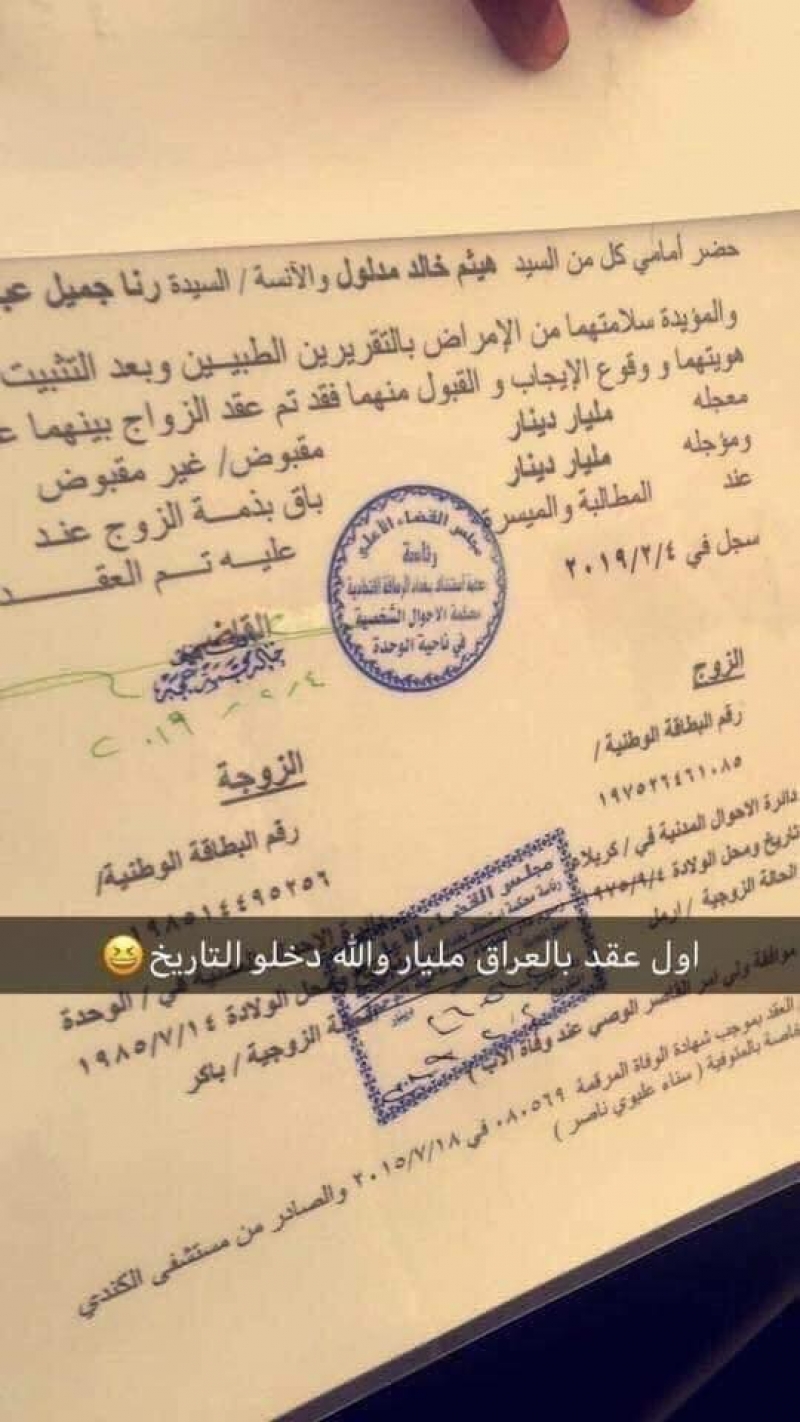 حضر أمامي كل من السيد هيثم خالد مدلول والآنسة / السيدة رنا جميل
والمؤيدة سلامتهما من الإمراض بالتقريرين الطبيين وبعد التثبيت
هويتهما و وقوع الإيجاب و القبول منهما فقد تم عقد الزواج بينهما
معجله مليار دينار مقبوض/ غير مقبوض
ومؤجله مليار دينار باق بذمة الزوج عند
عند المطالبة والميسرة عليه تم العقد
سجل في ٢٠١٩/٢/٤
مجلس القضاء الأعلى
رئاسة
محكمة استئناف بغداد الرصافة الاتحادية
محكمة الاحوال الشخصية
في ناحية الوحدة
القاضي
٢٠١٩/٢/٤
الزوج
رقم البطاقة الوطنية /
١٩٧٥٢٦٤٦١٠٨٥
دائرة الاحوال المدنية في / كربلاء
تاريخ ومحل الولادة ٩٧٥/٩/٤
الحالة الزوجية / ارمل
الزوجة
رقم البطاقة الوطنية/
١٩٨٥١٤٤٩٥٢٥٦
في / الوحدة
محل الولادة ١٩٨٥/٧/١٤
الزوجية / باكر
مجلس القضاء
اول عقد بالعراق مليار والله دخلو التاريخ😆
موافقة ولي امر القاصر الوصي عند وفاة الأب )
العقد بموجب شهادة الوفاة المرقمة ٠٨٠٥٦٩ في ٢٠١٥/٧/١٨ والصادر من مستشفى الكندي
خاصة بالمتوفية ( سناء عليوي ناصر )